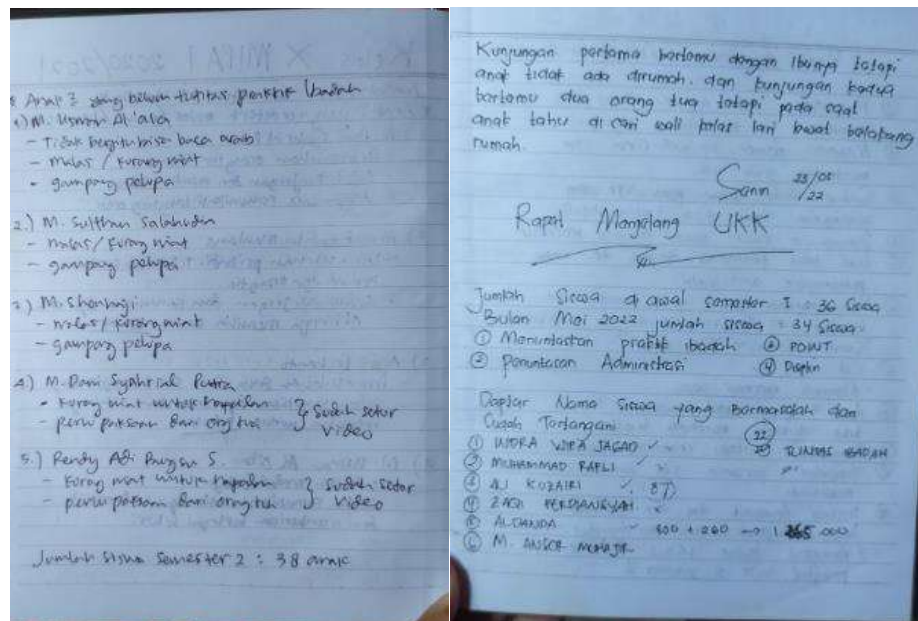 Anak 2 yang belum tuntas praktik Ibadah
1.) M. Usman Al 'ala
- Tidak begitu bisa baca arab
- malas / kurang niat
- gampang pelupa
2.) M. Sulthan Salahudin
- malas / kurang niat
- gampang pelupa
3.) M.
- malas / kurang niat
- gampang pelupa
4.) M. Dani Syahrial Putra
- kurang niat untuk hapalan
- perlu paksaan dari org tua
} Sudah setor video
5.) Rendy Adi S.
- kurang niat untuk hapalan
- perlu paksaan dari orang tua
} Sudah setor video
Jumlah siswa semester 2 : 38 anak
Kunjungan pertama bertemu dengan Ibunya tetapi
anak tidak ada dirumah. dan kunjungan kedua
bertemu dua orang tua tetapi pada saat
anak tahu di cari wali kelas lari lewat belakang
rumah.
Senin 23/05/22
Rapat Menjelang UKK
Jumlah Siswa di awal semester I : 36 Siswa
Bulan Mei 2022 jumlah siswa : 34 Siswa
① Menuntaskan praktik ibadah ③ POINT
② Penuntasan Administrasi ④ Disiplin
Daftar Nama siswa yang Bermasalah dan
Sudah Tertangani
22
① INDRA WIRA JAGAD ✓ TUNTAS IBADAH
② MUHAMMAD RAFLI ✓
③ ALI KUZAIRI ✓
④ ZAQI FERDIANSYAH
⑤ ALDANDA ✓ 800 + 260
⑥ M. ANSOR